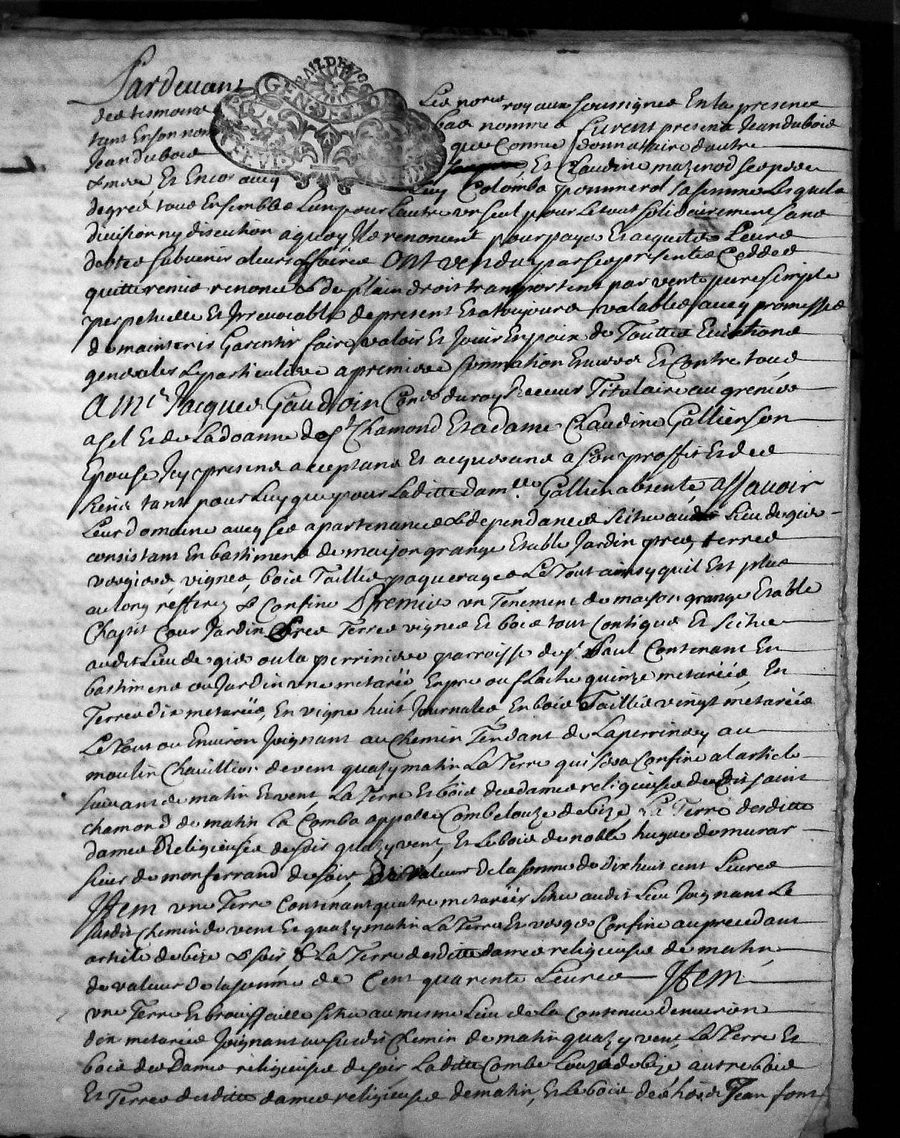 Pardevant Les notres royaux soussignes En la presence
des tesmoins bas nommes furent presens Jean dubois
tant En son nom que Comme donnataire d'autre
Jean dubois Et Claudine mazenod ses pere
& mere Et Encor avecq Luy Colomba pommerol sa femme Lesquels
de gre tous Ensembles Lun pour Lautre un seul pour Le tout solidairement sans
division ny discution a quoy Ils renoncent pour payer Et acquiter Leurs
debtes subvenir a leurs affaires ont vendu par ses presentes Cedde
quitte remis renoncé & de plain droit transportent par vente pure simple
perpetuelle Et Irrevocable de present Et a toujours valable avecq promesse
de maintenir Garentir faire valoir Et Jouir En paix de Touttes Evictions
generales & particulieres a premiere sommation Envers Et Contre tous
A Mr Jacques Gaudoin Coner du roy Receveur Titulaire au grenier
a sel Et de La doanne de St Chamond Et a dame Claudine Gallier son
Epouse Icy present acceptant Et acquerant a son proffit Et des
siens tant pour Luy que pour Laditte dame Gallier absente assavoir
Leur domaine avecq ses apartenances & dependances scitué au Lieu de gie
consistant En bastiments de maison grange Estable Jardin prez terres
vignes bois Taillis paquerages Le Tout ainsy quil Est plus
au long & Confiné premier un Tenement de maison grange Estable
Chapit Cour Jardin prez Terres vignes Et bois tout Contigus Et scitué
audit Lieu de gie ou la perriniere parroisse de St Paul Contenant En
bastiments ou Jardin une metarée, En pre ou quinze metarées, En
Terres dix metarées, En vigne huit Journales, En bois Taillis vingt metarées
Le tout ou Environ Joignant au Chemin Tendant de La perriney au
moulin de vent quazy matin La Terre qui sera Confine a Larticle
suivant de matin Et vent, La Terre Et bois des dames religieuses de saint
chamond de matin La Comba appellé Combelouze de bize La Terre desdittes
dames Religieuses de soir quazy vent, Et Le bois de noble hugue de murar
sieur de monferrand de soir De valeur de la somme de dix huit cent Livres
Item une Terre Contenant quatre metarées scitué audit Lieu Joignant Le
susdit Chemin de vent Et quazy matin La Terre Et verger Confiné au precedant
article de bize & soir & La Terre desdittes dames religieuses de matin
de valeur de la somme de Cent quarente Livres Item
une Terre Et broussaille scitué au mesme Lieu de La Contenue denviron
dix metarées Joignant au susdit Chemin de matin quazy vent La Terre Et
bois des Dames religieuses de soir Laditte Combe Louze de bize autre bois
Et Terres desdittes dames religieuses de matin, Et Le bois des hoirs Jean font